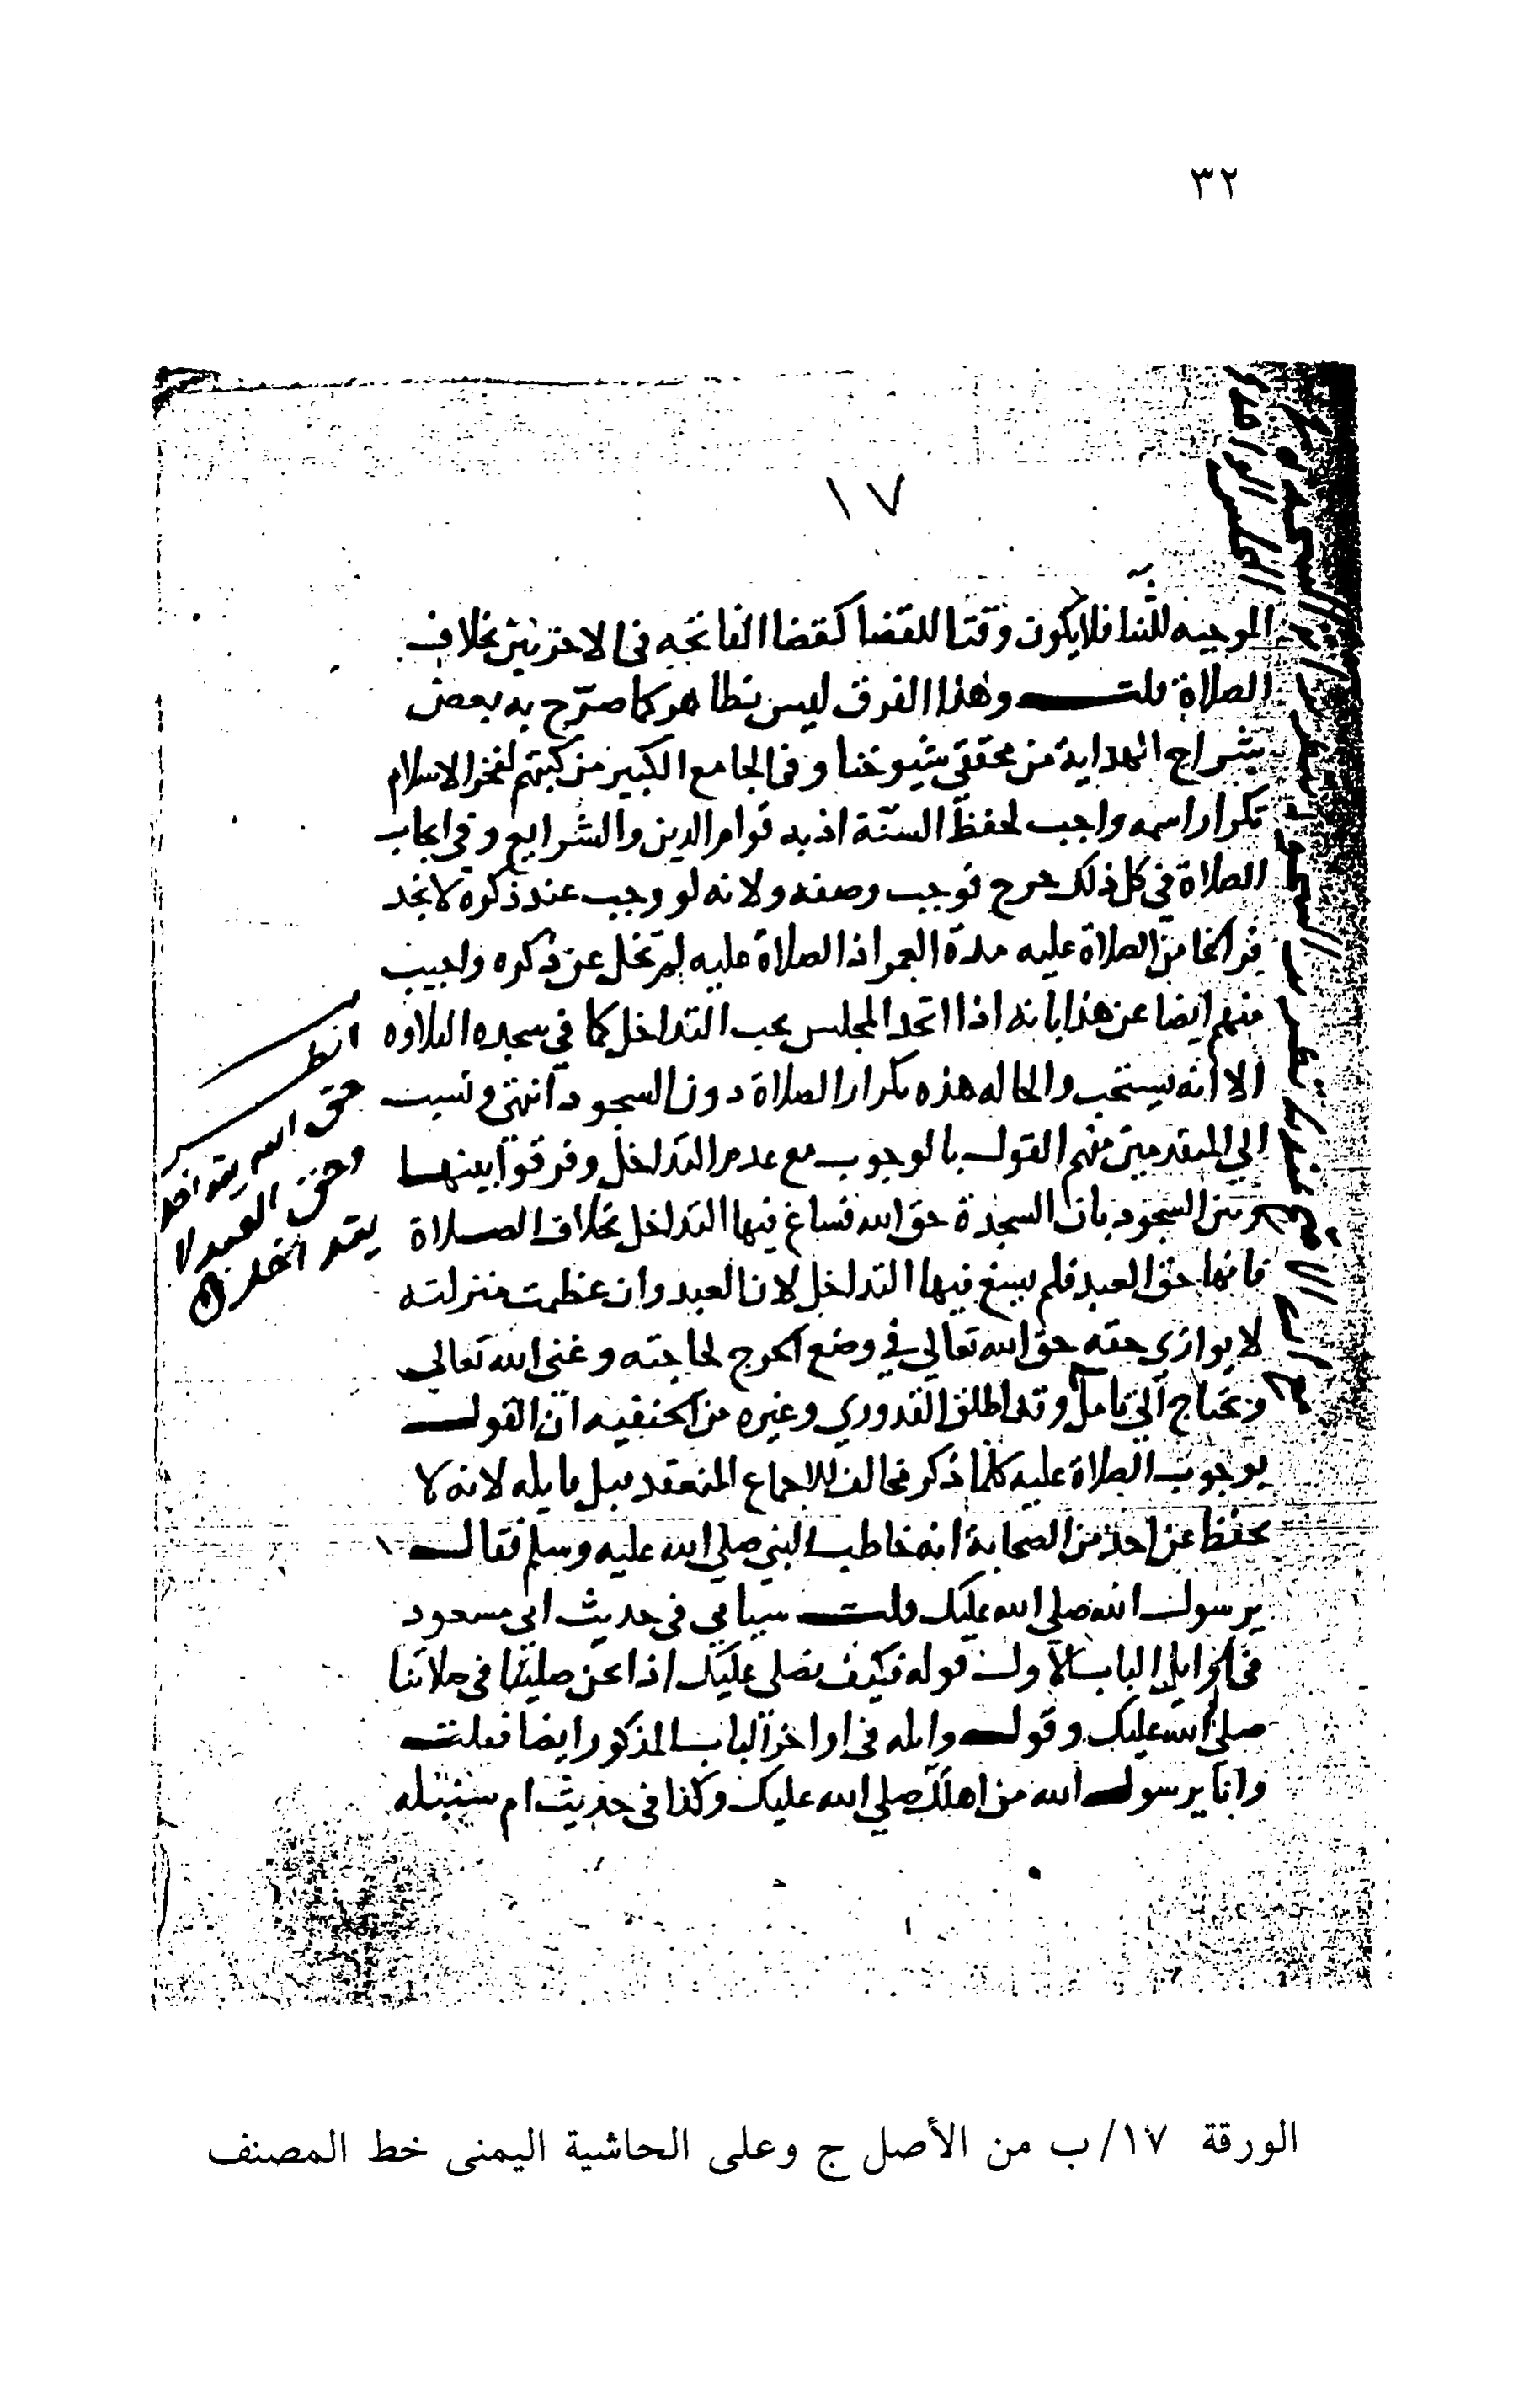 ٣٢
١٧
الموجبه للثنا فلا يكون وقتا للقضا كقضا الفاتحه في الاخريين بخلاف
الصلاة قلت وهذا الفرق ليس بظاهر كما صرّح به بعض
شراح الهداية من محققي شيوخنا وفي الجامع الكبير من كتبهم لفخر الاسلام
تكرار اسمه واجب لحفظ السنّة اذ به قوام الدين والشرايع وفي ايجاب
الصلاة في كل ذلك حرج فوجب وضعه ولانه لو وجب عند ذكره لا نجد
فراغا من الصلاة عليه مدة العمر اذ الصلاة عليه لم تخل عن ذكره واجيب
منهم ايضا عن هذا بانه اذا اتحد المجلس يجب التداخل كما في سجده التلاوه
الا انه يستحب والحاله هذه تكرار الصلاة دون السجود انتهى ونسب
الي المتقدمين منهم القول بالوجوب مع عدم التداخل وفرقوا بينها
وبين السجود بان السجدة حق الله فساغ فيها التداخل بخلاف الصلاة
فانها حق العبد فلم يسغ فيها التداخل لان العبد وان عظمت منزلته
لا يوازي حقه حق الله تعالي في وضع الحرج لحاجته وغنى الله تعالي
ويحتاج الي تامل وقد اطلق القدوري وغيره من الحنفيه ان القول
بوجوب الصلاة عليه كلما ذكر مخالف للاجماع المنعقد قبل قايله لانه لا
يحفظ عن احد من الصحابة انه خاطب النبي صلي الله عليه وسلم فقال
يرسول الله صلي الله عليك قلت سياتي في حديث ابي مسعود
في اوايل الباب الاول قوله فكيف نصلي عليك اذا نحن صلينا في صلاتنا
صلى الله عليك وقول واثله في اواخر الباب المذكور ايضا فقلت
وانا يرسول الله من اهلك صلي الله عليك وكذا في حديث ام سنبله
انظر
حق الله يتداخل
وحق العبد لا
يتداخل
الورقة ١٧/ب من الأصل ج وعلى الحاشية اليمنى خط المصنف